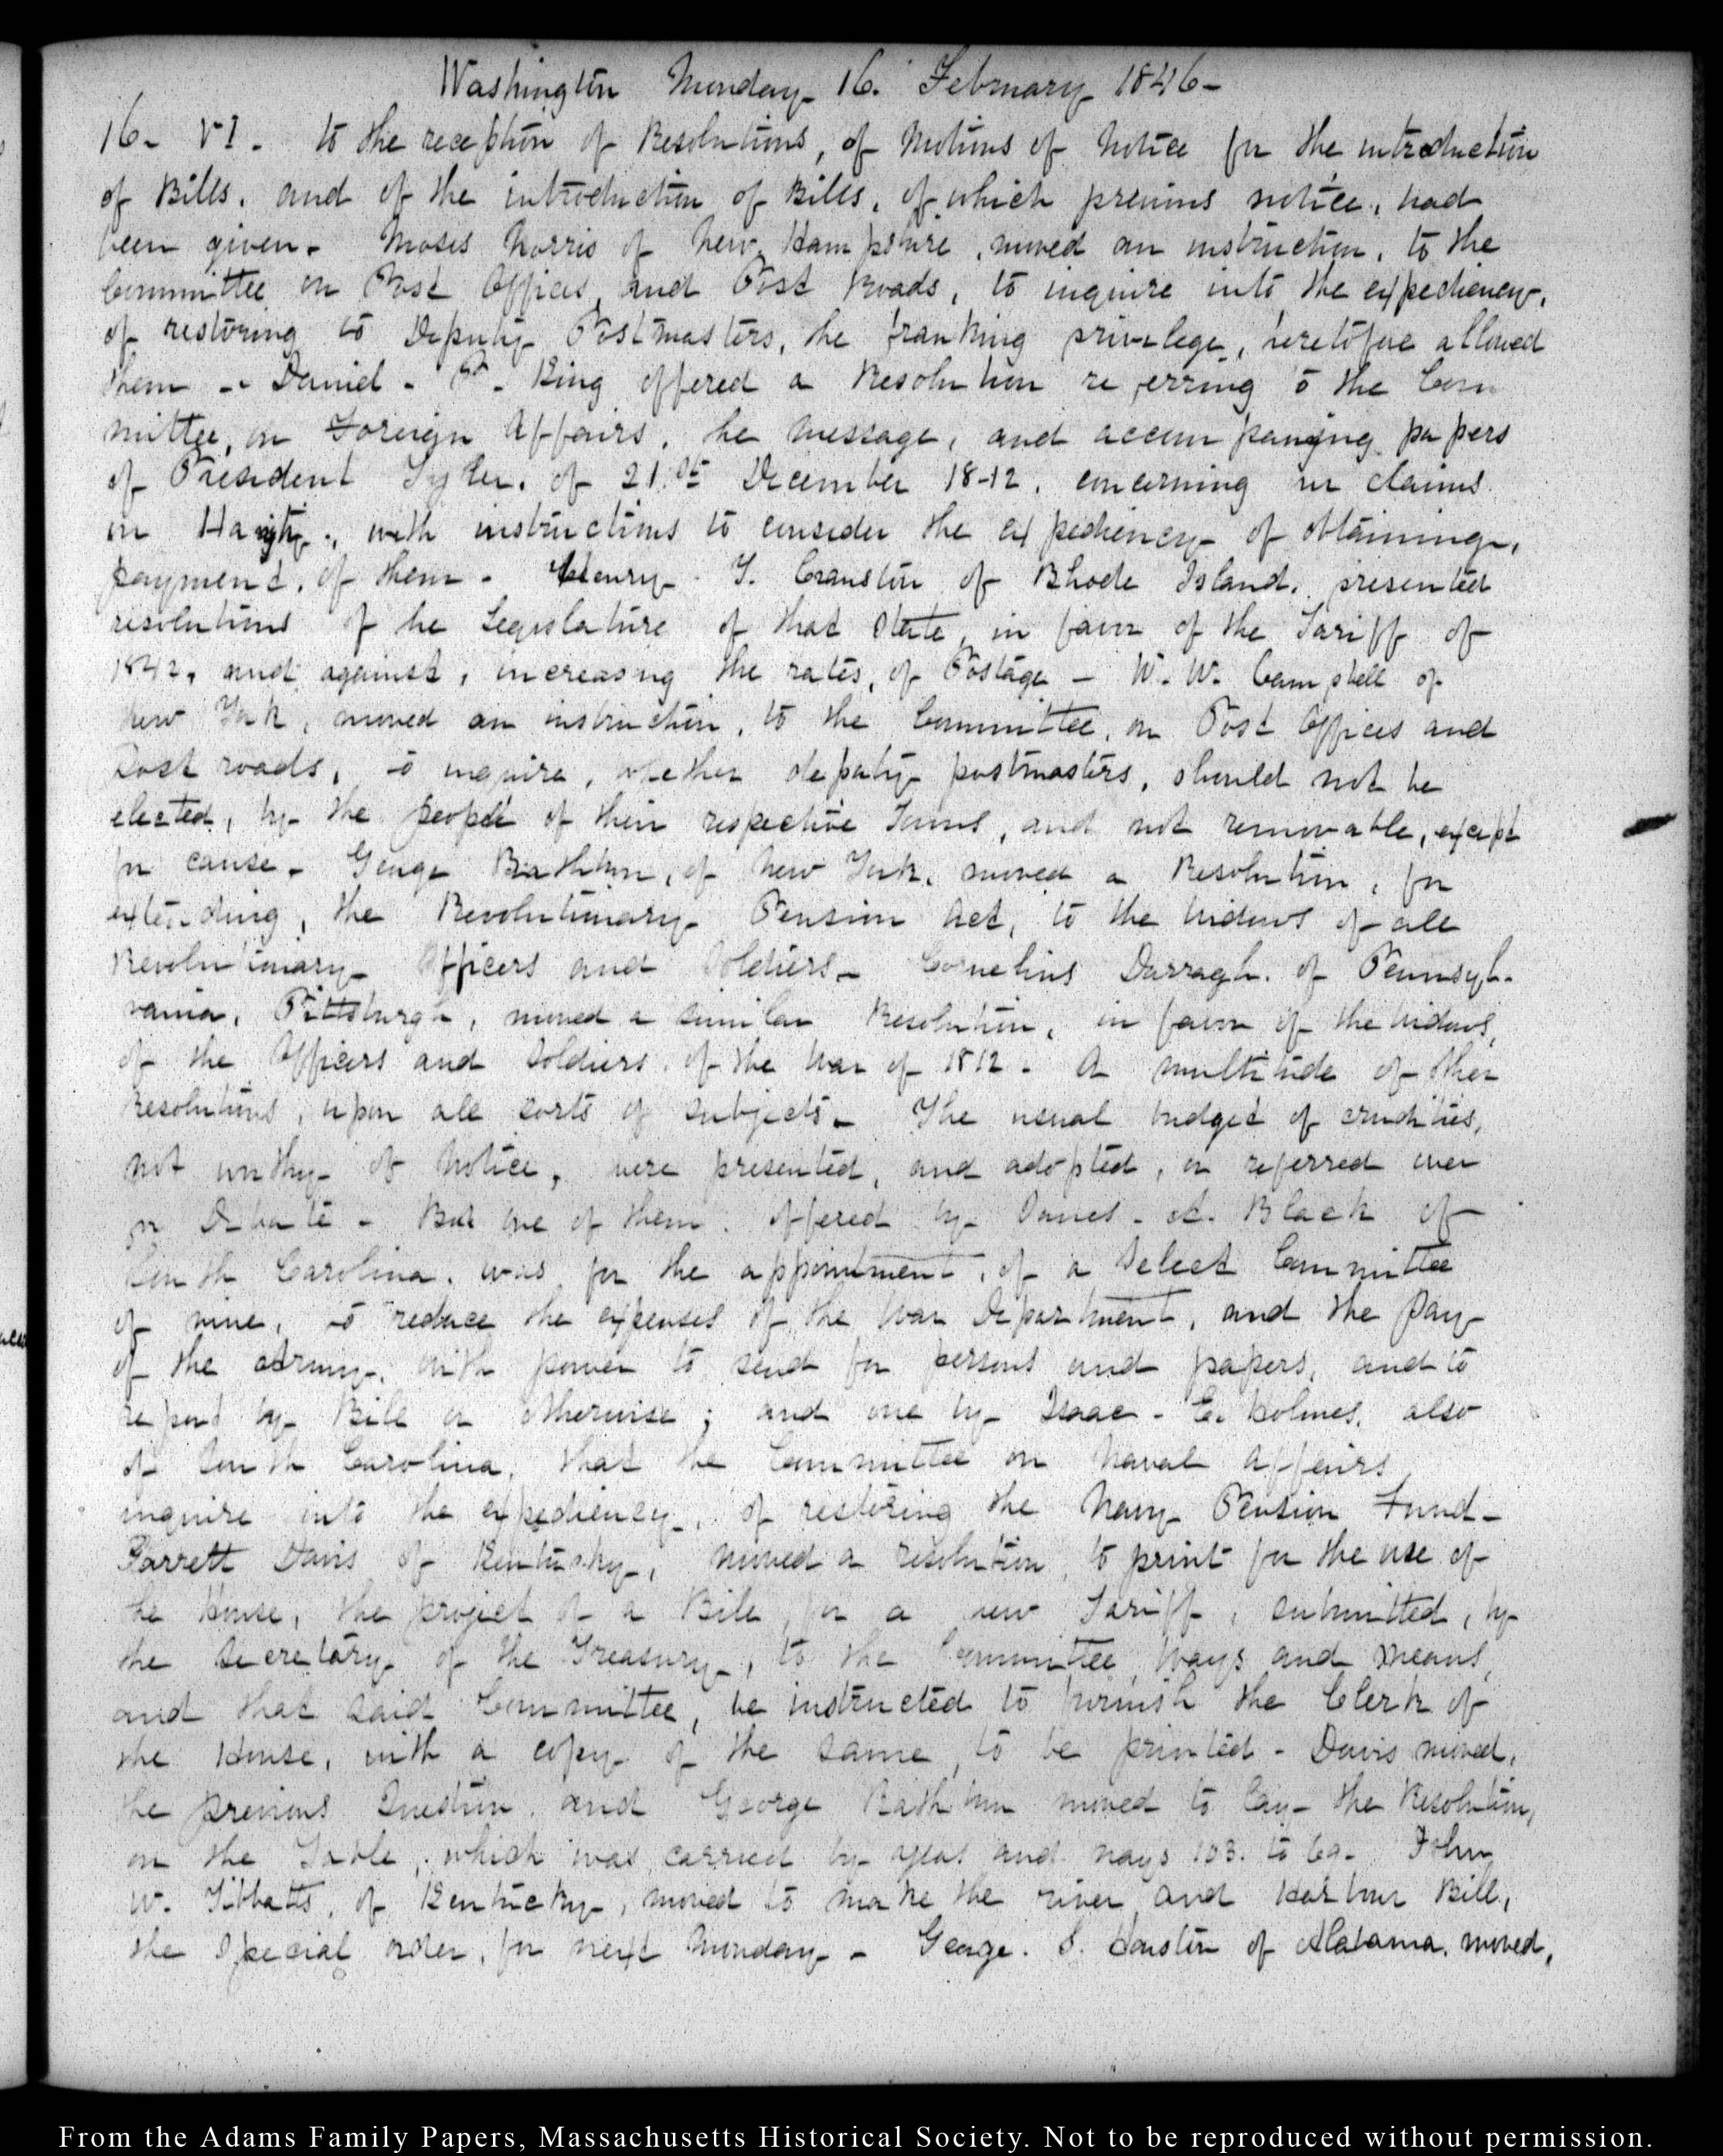 Washington Monday 16. February 1846-
16- VI. to the reception of Resolutions, of Motions of Notice for the introduction
of Bills, and of the introduction of Bills, of which previous notice, had
been given- Moses Norris of New Hampshire, moved an instruction, to the
Committee on Post Offices, and Post Roads, to inquire into the expediency,
of restoring to Deputy Postmasters, the franking privilege, heretofore allowed
them - Daniel - P. King offered a Resolution referring to the Com
mittee, on Foreign Affairs, the message, and accompanying papers
of President Tyler, of 21st December 1842, concerning our claims
on Hayti, with instructions to consider the expediency of obtaining,
payment, of them - Henry Y. Cranston of Rhode Island, presented
resolutions of the Legislature of that State, in favour of the Tariff of
1842, and against, increasing the rates, of Postage - W. W. Campbell of
New York, moved an instruction, to the Committee, on Post Offices and
Post roads, to inquire, whether deputy postmasters, should not be
elected, by the people of their respective Towns, and not removable, except
for cause - George Rathbun, of New York, moved a Resolution, for
extending, the Revolutionary Pension Act, to the widows of all
Revolutionary Officers and Soldiers- Cornelius Darragh, of Pennsyl-
vania, Pittsburgh, moved a similar Resolution, in favour of the widows,
of the Officers and Soldiers, of the War of 1812. A multitude of other
Resolutions, upon all sorts of subjects- The usual budget of crudities,
not worthy of Notice, were presented, and adopted, or referred over
for Debate - But one of them, offered by James - A. Black of
South Carolina, was for the appointment, of a Select Committee
of nine, to reduce the expenses of the War Department, and the pay
of the Army, with power to send for persons and papers, and to
report by Bill or otherwise; and one by Isaac - E. Holmes, also
of South Carolina, that the Committee on Naval Affairs,
inquire into the expediency, of restoring the Navy Pension Fund-
Garrett Davis of Kentucky, moved a resolution, to print for the use of
the House, the project of a Bill, for a new Tariff, submitted, by
the Secretary of the Treasury, to the Committee, ways and means,
and that said Committee, be instructed to furnish the Clerk of
the House, with a copy of the same, to be printed - Davis moved,
the previous Question, and George Rathbun moved to lay the Resolution,
on the Table, which was carried by yeas and nays 103. to 69. John
W. Tibbatts, of Kentucky, moved to make the river, and Harbour Bill,
the Special order, for next Monday - George. S. Houston of Alabama, moved,
From the Adams Family Papers, Massachusetts Historical Society. Not to be reproduced without permission.